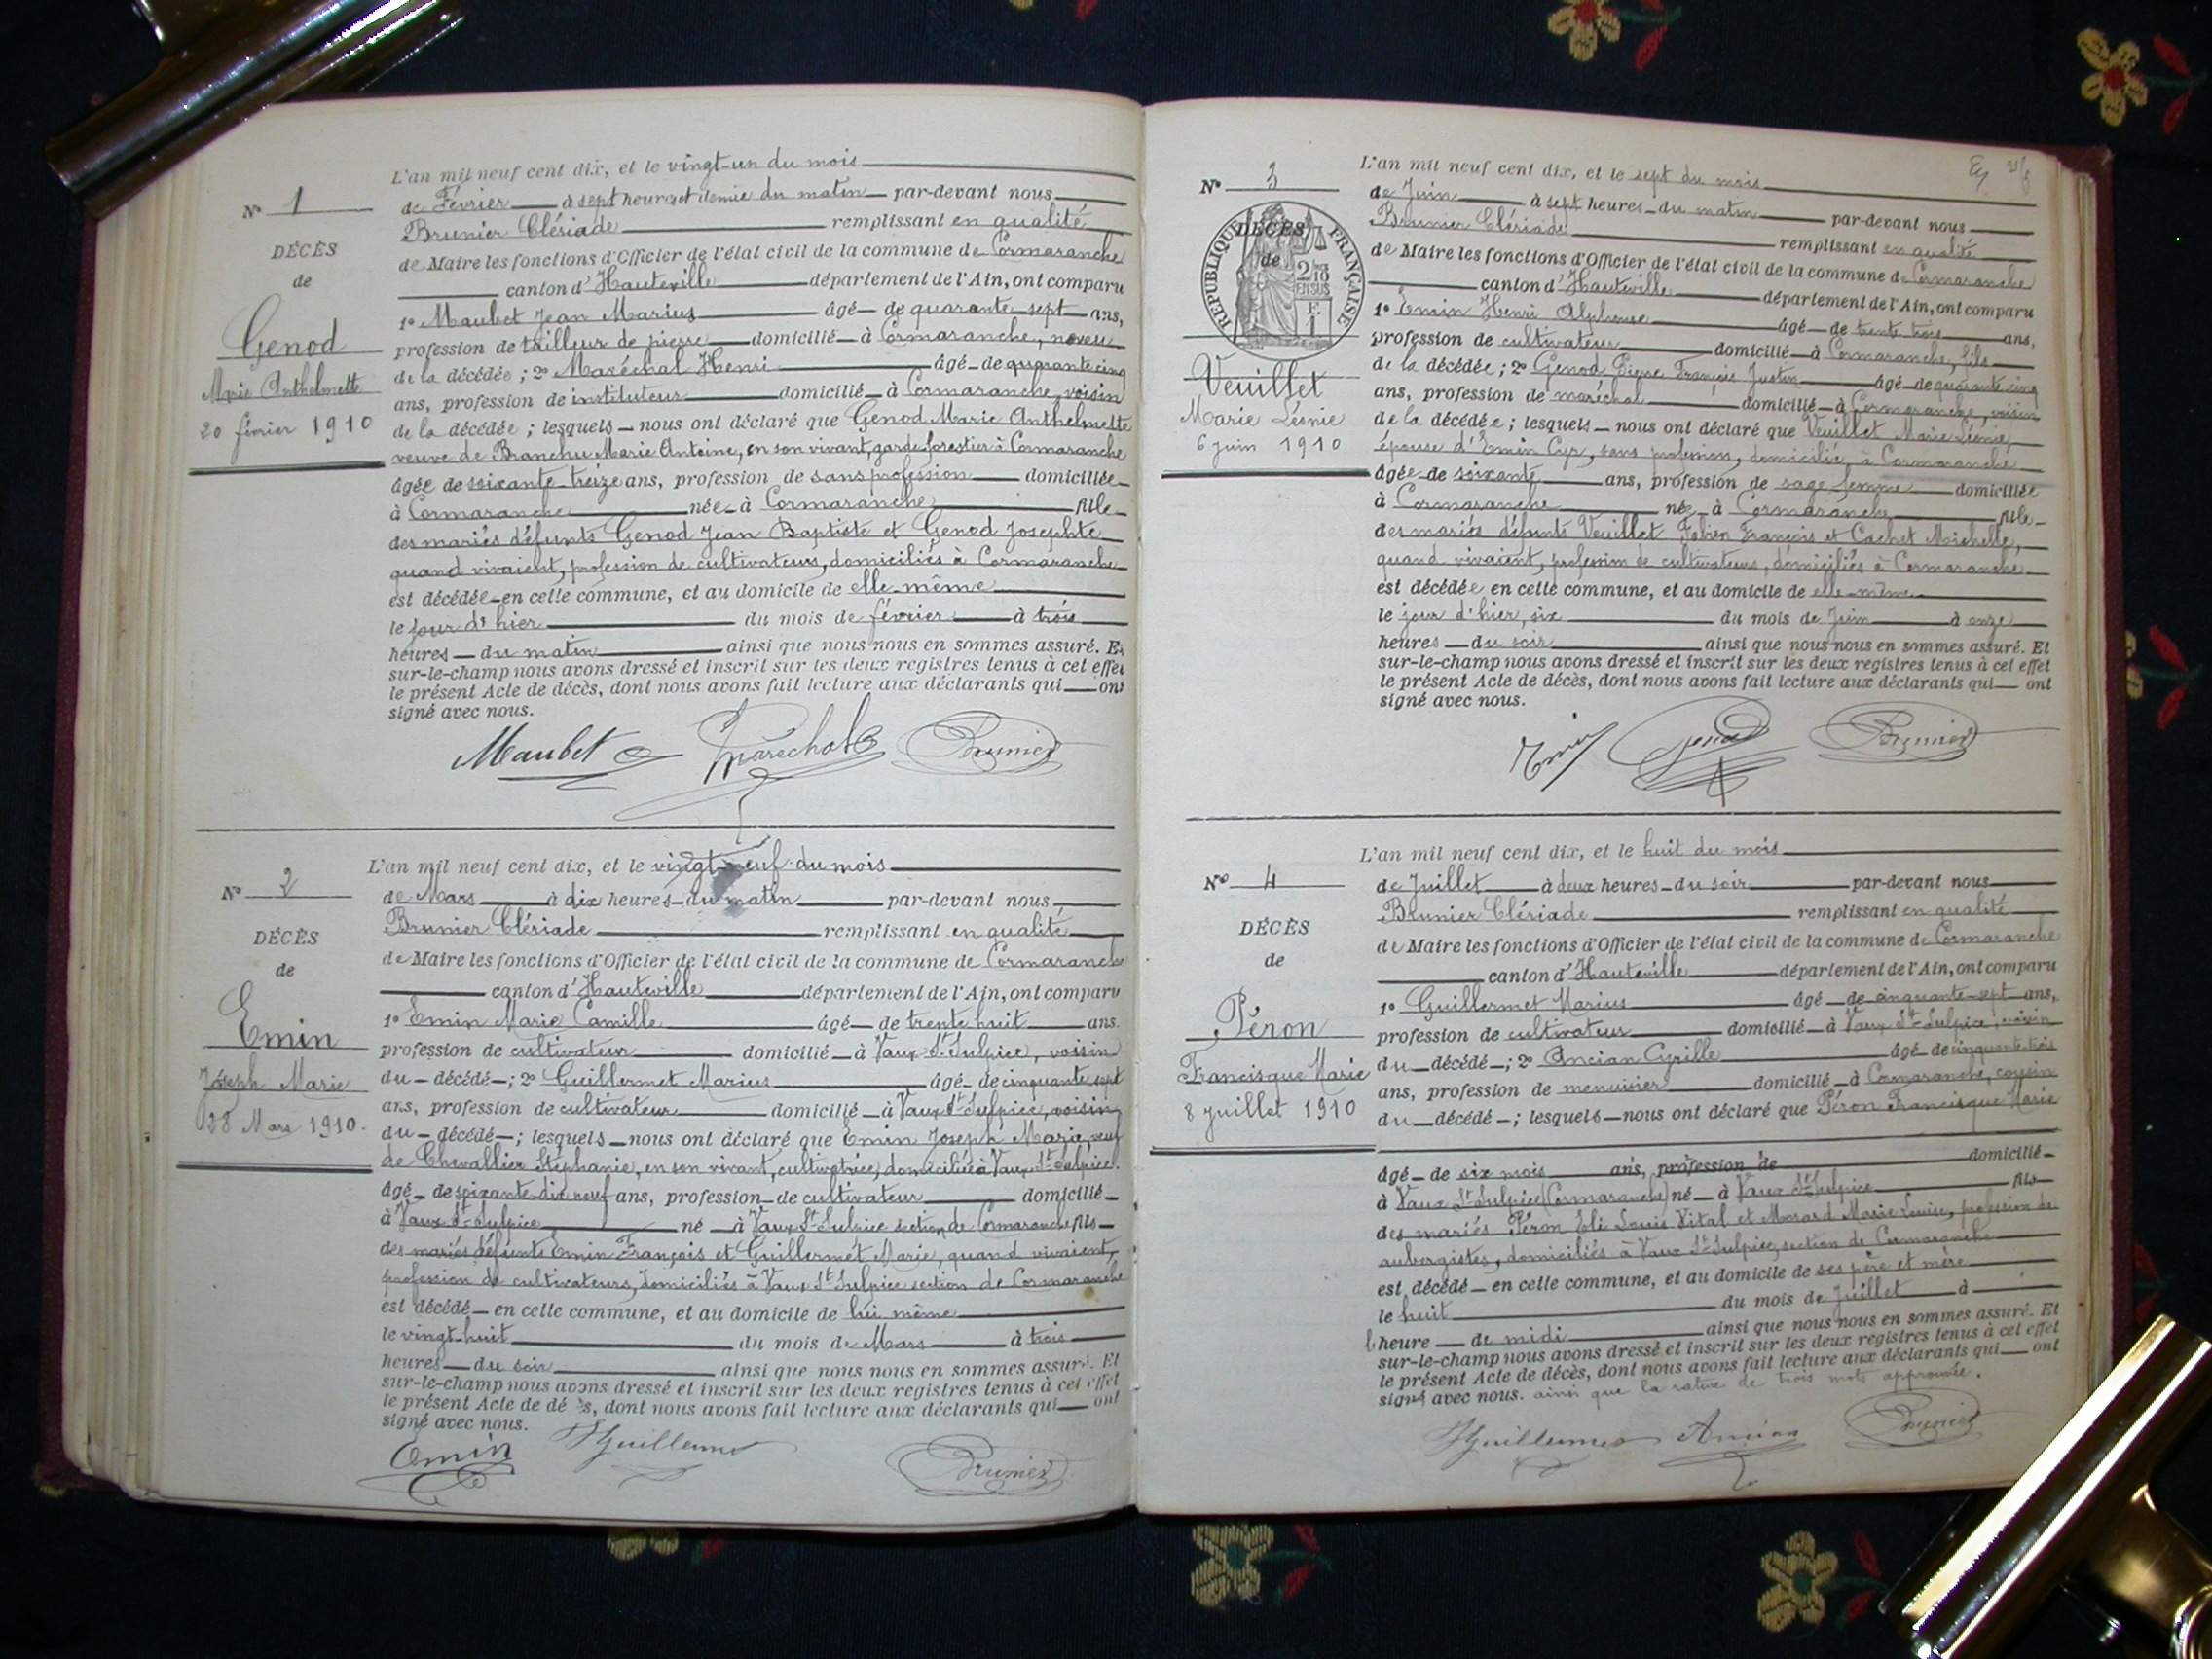 L'an mil neuf cent dix, et le vingt-un du mois
N° 1
de Février à sept heures et demie du matin par-devant nous
Brunier Clériade remplissant en qualité
DÉCÈS
de Maire les fonctions d'Officier de l'état civil de la commune de Cormaranche
de
canton d'Hauteville département de l'Ain, ont comparu
Genod
1° Maubet Jean Marius âgé de quarante-sept ans,
profession de tailleur de pierre domicilié à Cormaranche, neveu
Marie Anthelmette
de la décédée ; 2° Maréchal Henri âgé de quarante cinq
20 février 1910
ans, profession de instituteur domicilié à Cormaranche, voisin
de la décédée ; lesquels nous ont déclaré que Genod Marie Anthelmette
veuve de Branchu Marie Antoine, en son vivant, garde forestier à Cormaranche
âgée de soixante-treize ans, profession de sans profession domiciliée
à Cormaranche née à Cormaranche fille
des mariés défunts Genod Jean Baptiste et Genod Josephte
quand vivaient, profession de cultivateurs, domiciliés à Cormaranche
est décédée en cette commune, et au domicile de elle-même
le jour d'hier du mois de février à trois
heures du matin ainsi que nous nous en sommes assuré. Et
sur-le-champ nous avons dressé et inscrit sur les deux registres tenus à cet effet
le présent Acte de décès, dont nous avons fait lecture aux déclarants qui ont
signé avec nous.
Maubet Maréchal Brunier
L'an mil neuf cent dix, et le vingt-neuf du mois
N° 2
de Mars à dix heures du matin par-devant nous
Brunier Clériade remplissant en qualité
DÉCÈS
de Maire les fonctions d'Officier de l'état civil de la commune de Cormaranche
de
canton d'Hauteville département de l'Ain, ont comparu
Emin
1° Emin Marie Camille âgé de trente huit ans.
profession de cultivateur domicilié à Vaux-St-Sulpice, voisin
Joseph Marie
du décédé ; 2° Guillermet Marius âgé de cinquante sept
28 Mars 1910.
ans, profession de cultivateur domicilié à Vaux St-Sulpice, voisin
du décédé ; lesquels nous ont déclaré que Emin Joseph Marie, veuf
de Chevallier Stéphanie, en son vivant, cultivatrice, domiciliée à Vaux-St-Sulpice.
âgé de soixante-dix neuf ans, profession de cultivateur domicilié
à Vaux St-Sulpice né à Vaux St-Sulpice section de Cormaranche fils
des mariés défunts Emin François et Guillermet Marie, quand vivaient,
profession de cultivateurs, domiciliés à Vaux St-Sulpice section de Cormaranche
est décédé en cette commune, et au domicile de lui même
le vingt-huit du mois de Mars à trois
heures du soir ainsi que nous nous en sommes assuré. Et
sur-le-champ nous avons dressé et inscrit sur les deux registres tenus à cet effet
le présent Acte de décès, dont nous avons fait lecture aux déclarants qui ont
signé avec nous.
Emin Guillermet Brunier
L'an mil neuf cent dix, et le sept du mois
N° 3
de Juin à sept heures du matin par-devant nous
Brunier Clériade remplissant en qualité
RÉPUBLIQUE FRANÇAISE
DÉCÈS
de
de Maire les fonctions d'Officier de l'état civil de la commune de Cormaranche
canton d'Hauteville département de l'Ain, ont comparu
1° Emin Henri Alphonse âgé de trente trois ans,
profession de cultivateur domicilié à Cormaranche, fils
Veuillet
de la décédée ; 2° Genod Pierre François Justin âgé de quarante cinq
Marie Lésnie
ans, profession de maréchal domicilié à Cormaranche, voisin
6 juin 1910
de la décédée ; lesquels nous ont déclaré que Veuillet Marie Lésnie,
épouse d'Emin Cyr, sans profession, domicilié à Cormaranche
âgée de soixante ans, profession de sage femme domiciliée
à Cormaranche née à Cormaranche fille
des mariés défunts Veuillet Fabien François et Cachet Michelle,
quand vivaient, profession de cultivateurs, domiciliés à Cormaranche
est décédée en cette commune, et au domicile de elle-même
le jour d'hier, six du mois de Juin à onze
heures du soir ainsi que nous nous en sommes assuré. Et
sur-le-champ nous avons dressé et inscrit sur les deux registres tenus à cet effet
le présent Acte de décès, dont nous avons fait lecture aux déclarants qui ont
signé avec nous.
Emin Genod Brunier
L'an mil neuf cent dix, et le huit du mois
N° 4
de Juillet à deux heures du soir par-devant nous
Brunier Clériade remplissant en qualité
DÉCÈS
de Maire les fonctions d'Officier de l'état civil de la commune de Cormaranche
de
canton d'Hauteville département de l'Ain, ont comparu
Péron
1° Guillermet Marius âgé de cinquante-sept ans,
profession de cultivateur domicilié à Vaux St-Sulpice, voisin
Francisque Marie
du décédé ; 2° Ancian Cyrille âgé de cinquante-trois
8 juillet 1910
ans, profession de menuisier domicilié à Cormaranche, cousin
du décédé ; lesquels nous ont déclaré que Péron Francisque Marie
âgé de six mois ans, profession de domicilié
à Vaux St-Sulpice (Cormaranche) né à Vaux St-Sulpice fils
des mariés Péron Eli Louis Vital et Morard Marie Louise, profession de
aubergistes, domiciliés à Vaux St-Sulpice, section de Cormaranche
est décédé en cette commune, et au domicile de ses père et mère
le huit du mois de Juillet à
l'heure de midi ainsi que nous nous en sommes assuré. Et
sur-le-champ nous avons dressé et inscrit sur les deux registres tenus à cet effet
le présent Acte de décès, dont nous avons fait lecture aux déclarants qui ont
signé avec nous. ainsi que la rature de trois mots approuvée.
Guillermet Ancian Brunier